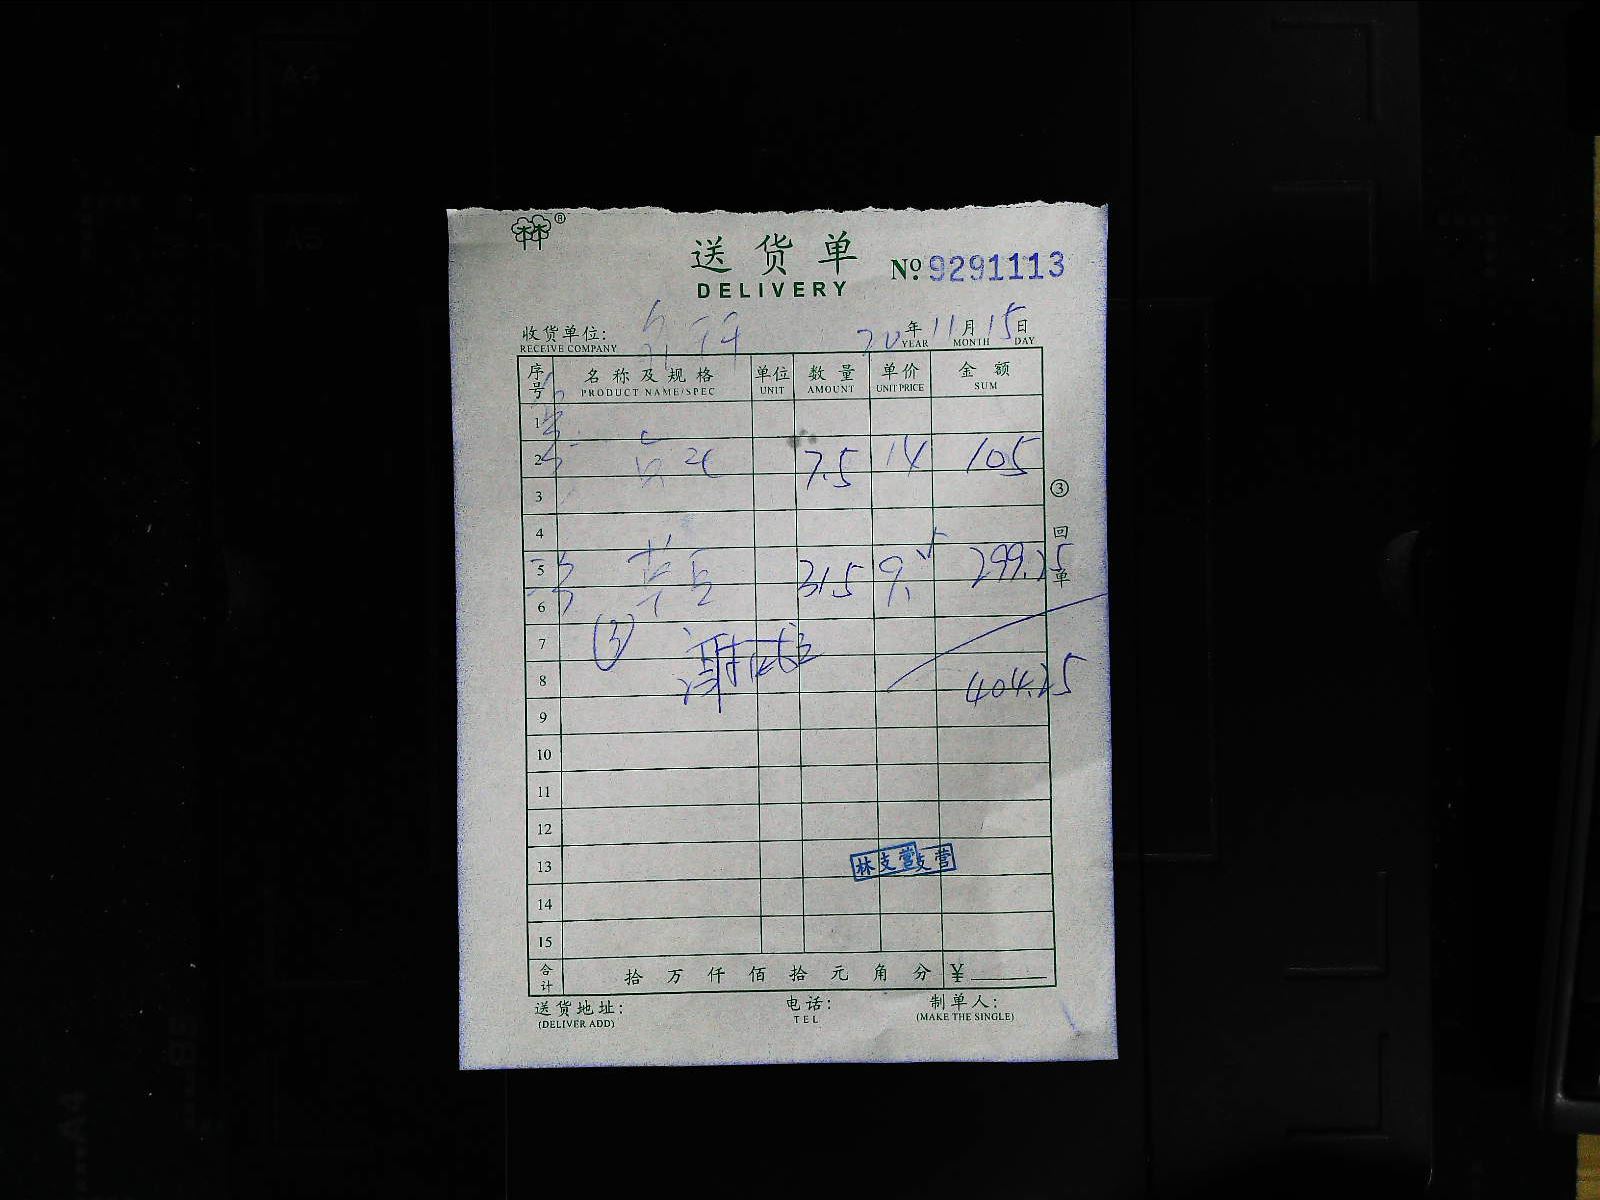 送货单
DELIVERY
No. 9291113
收货单位:
RECEIVE COMPANY
20年11月15日
YEAR MONTH DAY
序号 名称及规格 单位 数量 单价 金额
PRODUCT NAME/SPEC UNIT AMOUNT UNIT PRICE SUM
1
2 7.5 14 105
3
4
5 31.5 9.5 299.25
6
7 (3)
8 404.25
9
10
11
12
13 林支营支营
14
15
合计 拾 万 仟 佰 拾 元 角 分 ¥
③ 回单
送货地址: 电话: 制单人:
(DELIVER ADD) TEL (MAKE THE SINGLE)
A4
A5